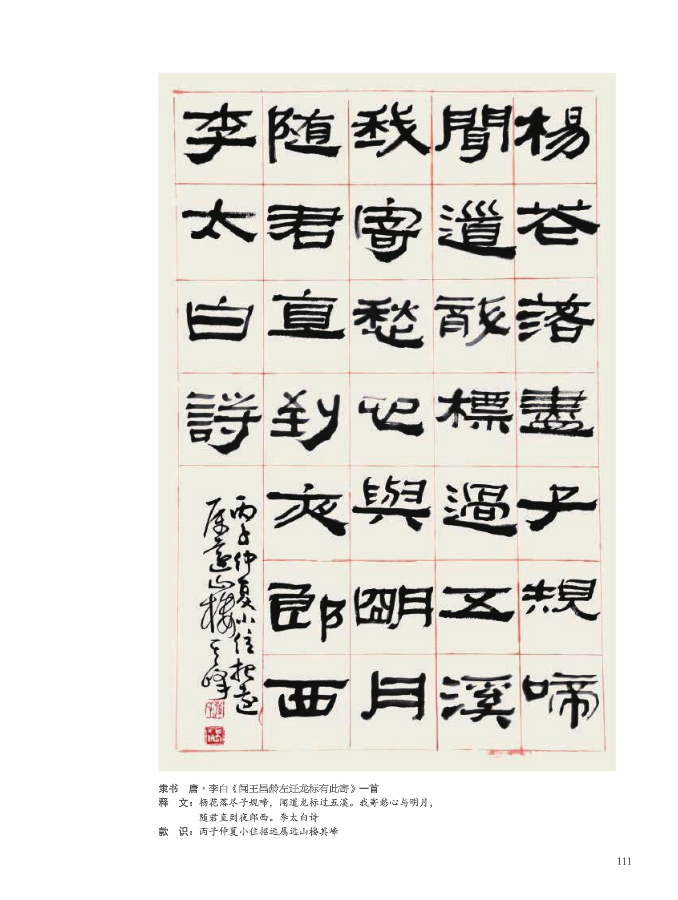 楊花落盡子規啼
聞道龍標過五溪
我寄愁心與明月
隨君直到夜郎西
李太白詩
丙子仲夏小住招遠
属遠山樓其峰
隶书 唐·李白《闻王昌龄左迁龙标有此寄》一首
释 文：杨花落尽子规啼，闻道龙标过五溪。我寄愁心与明月，
随君直到夜郎西。李太白诗
款 识：丙子仲夏小住招远属远山楼其峰
111